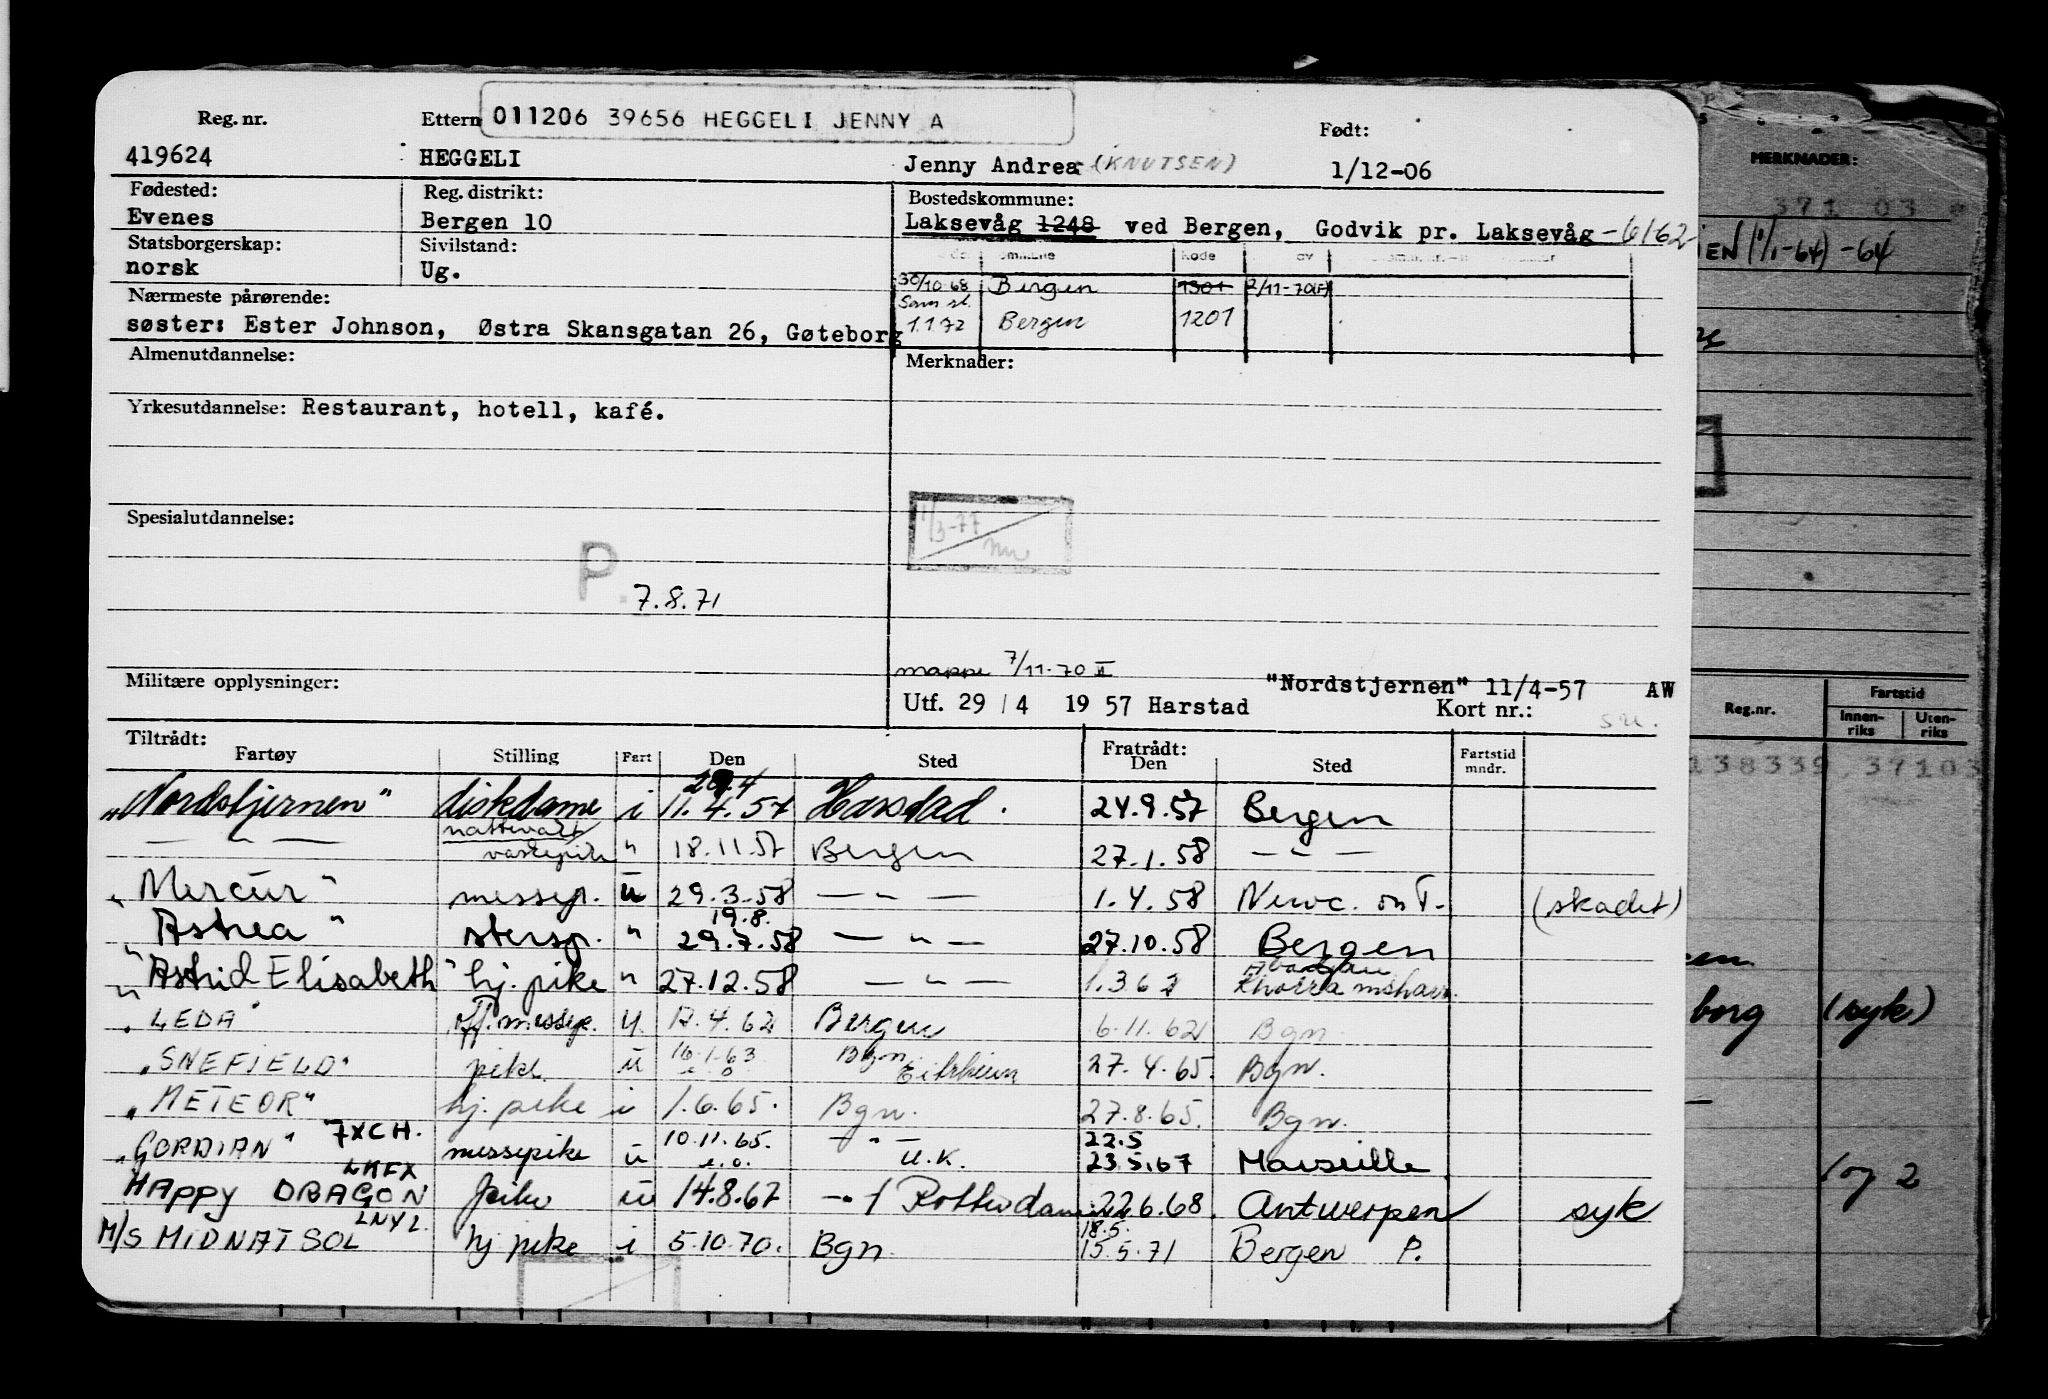 Reg. nr. Ettern 011206 39656 HEGGELI JENNY A Født:
419624 HEGGELI Jenny Andrea (KNUTSEN) 1/12-06
Fødested: Reg. distrikt: Bostedskommune:
Evenes Bergen 10 Laksevåg 1248 ved Bergen, Godvik pr. Laksevåg -6162
Statsborgerskap: Sivilstand:
norsk Ug.
30/10 68 Bergen 1301 2/11-70(F)
Nærmeste pårørende:
søster: Ester Johnson, Østra Skansgatan 26, Gøteborg
1.1 72 Bergen 1201
Almenutdannelse: Merknader:
Yrkesutdannelse: Restaurant, hotell, kafé.
1/3-77
Spesialutdannelse:
P.
7.8.71
mappe 7/11-70 II
Militære opplysninger: "Nordstjernen" 11/4-57 AW
Utf. 29 / 4 19 57 Harstad Kort nr.:
Tiltrådt: Fratrådt:
Fartøy Stilling Fart Den Sted Den Sted Fartstid mndr.
"Nordstjernen" diskdame i 11.4.57 Harstad. 24.9.57 Bergen
— " — nattevakt vaskepike " 18.11.57 Bergen 27.1.58 — " —
"Mercur" messep. u 29.3.58 — " — 1.4.58 Newc. on T. (skadet)
19.8.
"Astrea" " 29.7.58 — " — 27.10.58 Bergen
"Astrid Elisabeth" hj. pike " 27.12.58 — " — 1.3 62
"LEDA" 17.4.62 Bergen 6.11.62 Bgn
"SNEFJELD" pike u 16.1.63 e.o. Bgn Eitrheim 27.4.65. Bgn.
"METEOR" hj. pike i 1.6.65. Bgn. 27.8.65. Bgn.
"GORDIAN" 7XCH. messepike u 10.11.65. e.o. — " — U.K. 22.5 23.5.67 Marseille
HAppy DRAGON LMFX pike u 14.8.67 Rotterdam 22.6.68. Antwerpen syk
M/S MIDNATSOL LNYL hj. pike i 5.10.70. Bgn 18.5. 15.5.71 Bergen P.
MERKNADER:
371 03
(1/1-64) -64
Reg.nr. Fartstid
Innen-riks Uten-riks
138339, 37103
borg (syk)
og 2